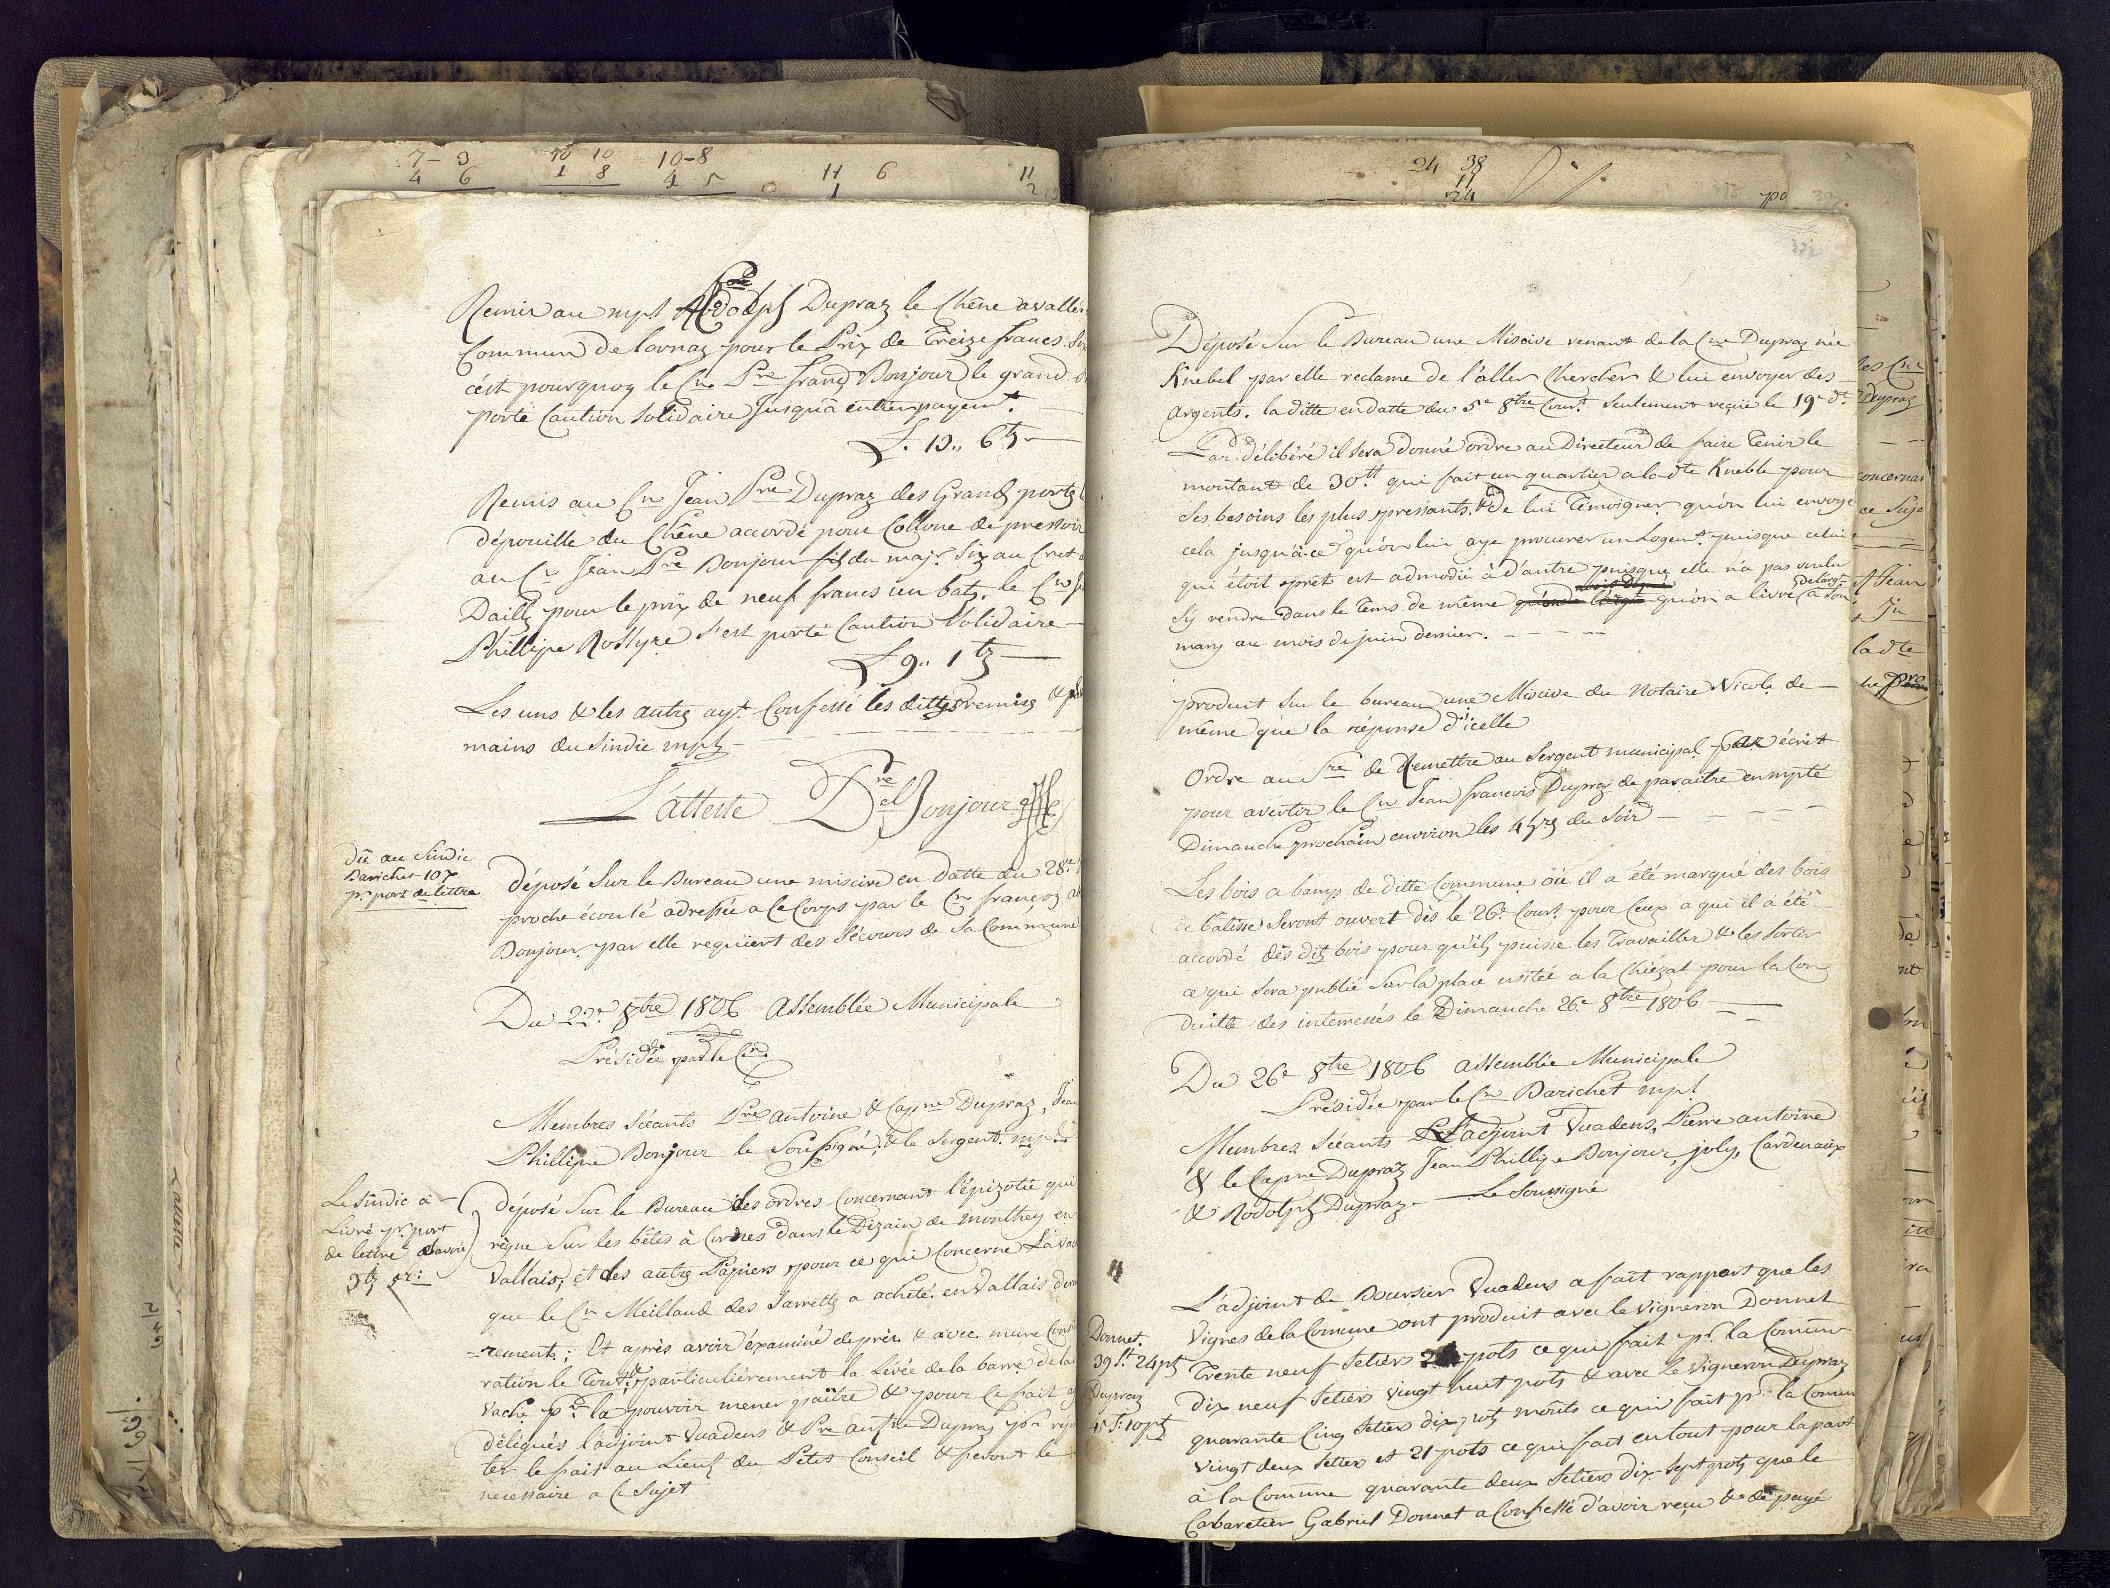 7-3 10 10 10-8 11 6 11
4 6 1 8 4 5 1 2
Remis au mpl Rodolph Dupraz le Chêne avallé
Commun de lovnaz pour le Prix de Treize francs Six
c'est pourquoy le Cn Pre franç Bonjour le grand
porté Caution Solidaire Jusqu'à entier payemt.
L. 13,, 6 tz
Remis au Cn Jean Pre Dupraz des Grands portes
dépouille du Chêne accordé pour Collone de pressoir
au Cn Jean Pre Bonjour fils du majr. Six au Cret
Dailly pour le prix de neuf francs un batz. le Cn
Phillipe Rossyre s'est porté Caution Solidaire
L 9,, 1 tz
Les uns & les autres ayt. Confessé les dittes remises &
mains du Sindic mpl
L'atteste Del Bonjour Sre
Dû au Sindic
Barichet 10 x
pr. port de lettre
déposé Sur le Bureau une miscive en Datte du 28e
proche écoulé adressée a Ce Corps par le Cn françois
Bonjour par elle requiert des Sécours de Sa Commune
Du 22e 8tre 1806 Assemblée Municipale
Présidée par le Cn
Membres Séeants Pre Antoine & Capne Dupraz, Jean
Phillipe Bonjour le Soussigné, & le Sergent. mpl
Le Sindic a
Livré pr. port
de lettre Savoir
3 tz
déposé Sur le Bureau des ordres Concernant l'épizotie qui
règne Sur les bêtes à Cornes dans le Dizain de Monthey en
Vallais, et des autres Papiers pour ce qui Concerne La Vache
que le Cn Meilland des Jarrettes a acheté en Vallais
rement; Et après avoir éxaminé de près & avec mure Consi
ration le Tout, & particulièrement la Levée de la barre de la
Vache pr. la pouvoir mener paître & pour Ce fait
délégués l'adjoint Vuadens & Pre antne Dupraz pr.
ter le fait au Lieut du Petit Conseil & feront le
necessaire a Ce Sujet
24 38
11
24
Déposé Sur le Bureau une Miscive venant de la Cne Dupraz née
Knebel par elle reclame de l'aller Chercher & lui envoyer des
argents. la ditte en datte du 5e 8bre Court. Seulement reçue le 19e dt.
Par délibéré il sera donné ordre au Directeur de faire Tenir le
montant de 30 tt qui fait un quartier a la dte Kneble pour
Ses besoins les plus pressants. & de lui Témoigner qu'on lui envoye
cela jusqu'à ce qu'on lui aye procurer un Logemt. puisque celui
qui étoit prêt est admodié à d'autre puisque elle n'a pas voulu
Sÿ rendre dans le Tems de même qu'on a livré De l'argt. a Son
mary au mois de juin dernier.
produit Sur le bureau une Miscive du Notaire Nicole de
même que la réponse d'icelle
Ordre au Sre de Remettre au Sergent municipal par écrit
pour avertir le Cn Jean françois Dupraz de paraître en mpté
Dimanche prochain environ les 4 hrs du Soir
Les bois a bamps de ditte Commune où il a été marqué des bois
de batisse Seront ouvert dès le 26e. Court. pour Ceux a qui il a été
accordé dès dits bois pour qu'ils puisse les Travailler & les Sortir
ce qui Sera publié Sur la place usitée a la Chiézat pour la Con
duitte des interressés le Dimanche 26e 8tre 1806
Du 26e 8tre 1806 Assemblée Municipale
Présidée par le Cn Barichet mpl
Membres Séeants L'adjoint Vuadens, Pierre antoine
& le Capne Dupraz Jean Phillipe Bonjour, joly, Cardinaux
& Rodolph Dupraz Le Soussigné
L'adjoint de Boursier Vuadens a fait rapport que les
Vignes de la Comune ont produit avec le Vigneron Donnet
Trente neuf Setiers 24 pots ce qui fait pr. la Comune
dix neuf Setiers Vingt huit pots & avec le Vigneron Dupraz
quarante Cinq Setiers dix pots mouts ce qui fait pr. la Comun
Vingt deux Setiers et 21 pots ce qui fait en tout pour la part
à la Comune quarante deux Setiers dix-Sept pots que le
Cabaretier Gabriel Donnet a Confessé d'avoir reçu & de payé
Donnet.
39 St. 24 pts
Dupraz
45 S: 10 pts